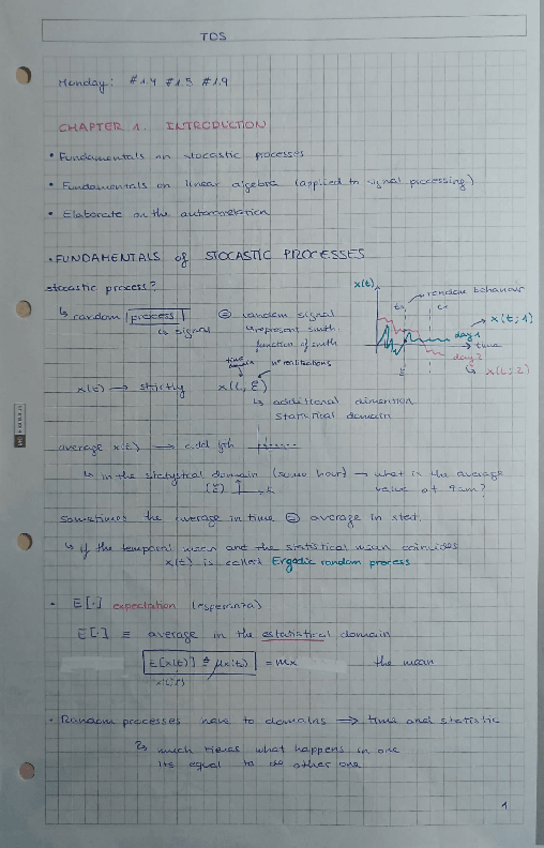 TDS
Monday: #1.4 #1.5 #1.9
CHAPTER 1. INTRODUCTION
• Fundamentals on stocastic processes
• Fundamentals on linear algebra (applied to signal processing)
• Elaborate on the autocorrelation
• FUNDAMENTALS of STOCASTIC PROCESSES
stocastic process?
↳ random process = random signal
↳ signal
↳ represent smth
function of smth
x(t)
random behaviour
day 1 → x(t;1)
time
day 2
↳ x(t;2)
time domain
nº realizations
x(t) → strictly x(t, ξ)
↳ additional dimention
statistical domain
average x(t) →
↳ in the statystical domain (same hour) → what is the average
value at 9am?
Sometimes the average in time = average in stat.
↳ if the temporal mean and the statistical mean coincides
x(t) is called Ergodic random process
• E[·] expectation (esperanza)
E[·] ≡ average in the estatistical domain
E[x(t)] ≜ μx(t) = mx the mean
• Random processes have to domains ⇒ time and statistic
↳ much times what happens in one
its equal to the other one
1